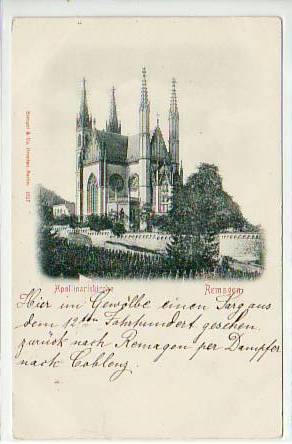 Stengel & Co., Dresden-Berlin. 1527
Apollinariskirche Remagen
Hier im Gewölbe einen Sarg aus
dem 12ten Jahrhundert gesehen
zurück nach Remagen per Dampfer
nach Coblenz.